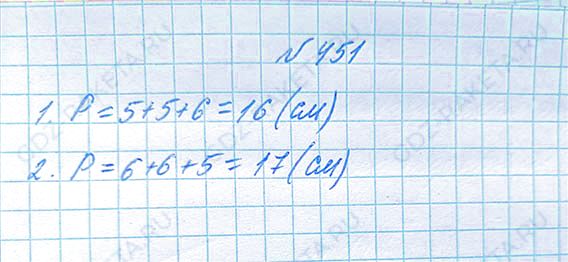 N 451
1. P = 5+5+6 = 16 (см)
2. P = 6+6+5 = 17 (см)
GDZ-RAKETA.RU